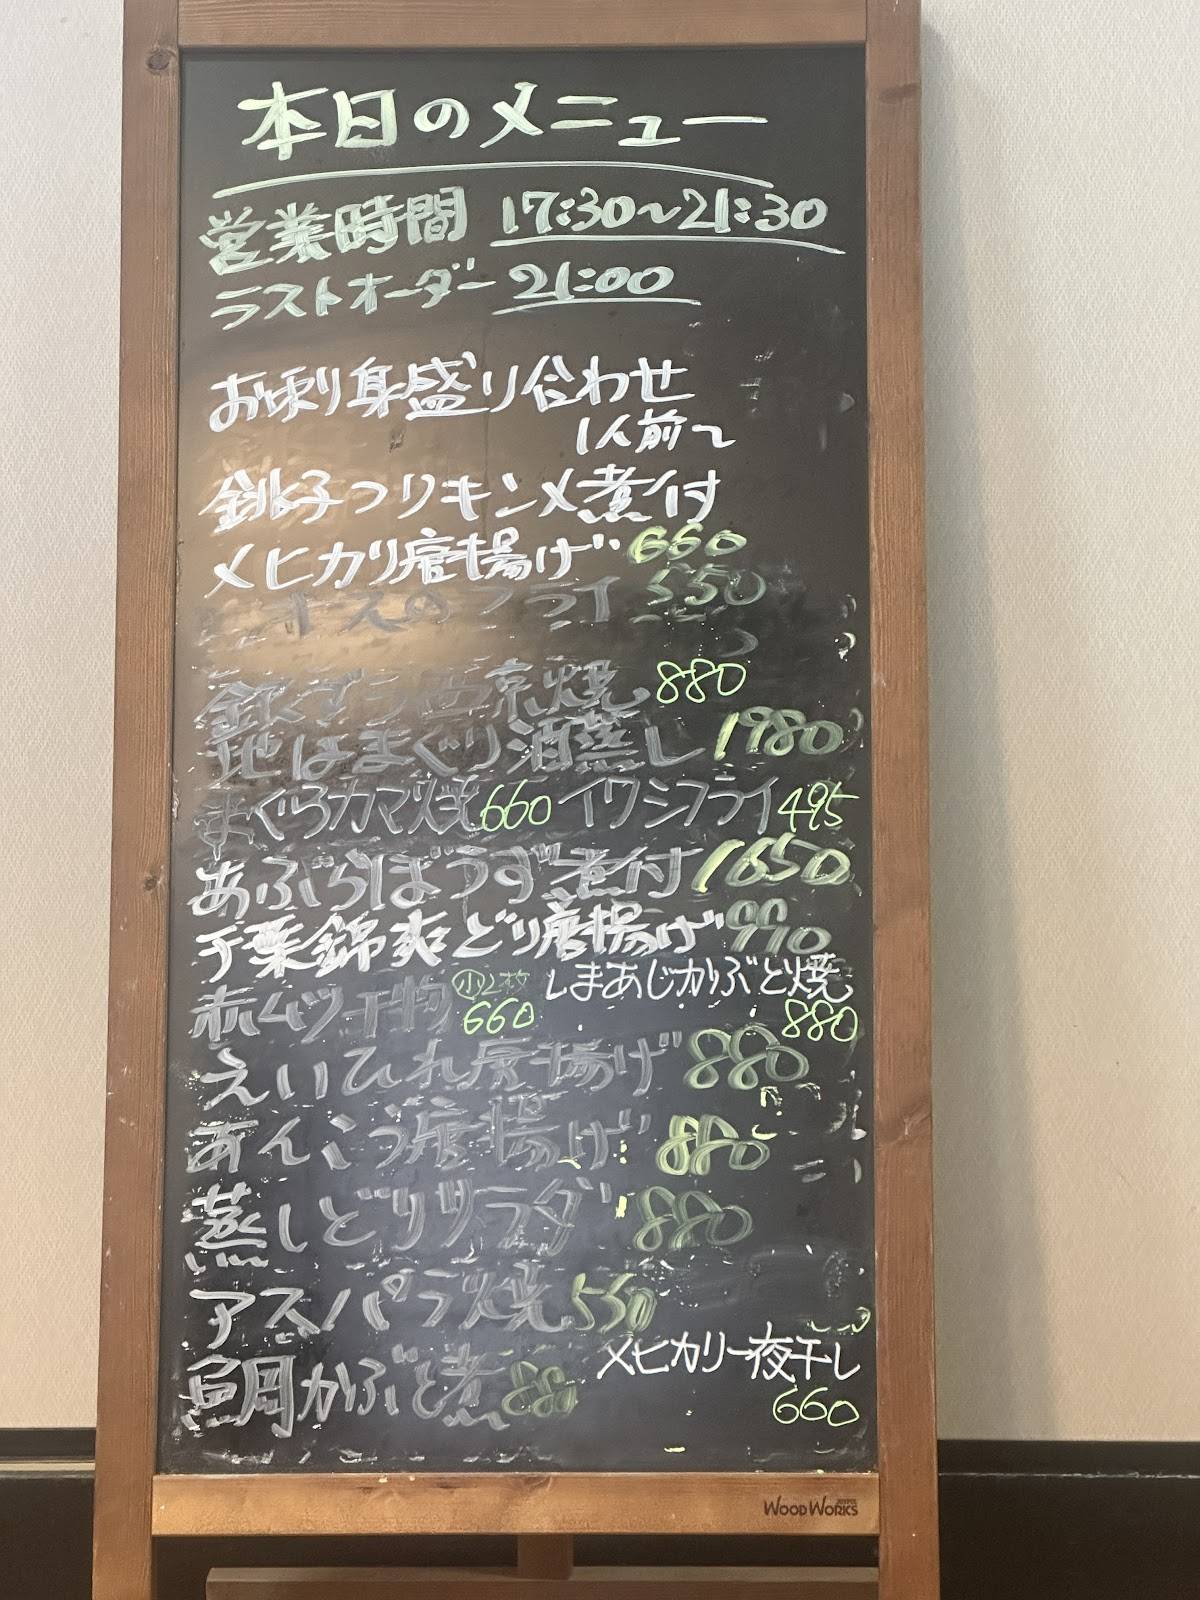 本日のメニュー
営業時間 17:30〜21:30
ラストオーダー 21:00
お刺身盛り合わせ
1人前〜
銚子つりキンメ煮付
メヒカリ唐揚げ 660
キスのフライ 550
銀ダラ西京焼 880
地はまぐり酒蒸し 1980
まぐろカマ焼 660 イワシフライ 495
あぶらぼうず煮付 1650
千葉錦爽どり唐揚げ 990
赤ムツ干物 小2枚 660
しまあじかぶと焼 880
えいひれ唐揚げ 880
あんこう唐揚げ 880
蒸しどりサラダ 880
アスパラ焼 550
鯛かぶと煮 880
メヒカリ一夜干し
660
WOODWORKS